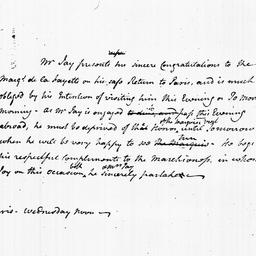 Mr Jay presents his sincere Congratulations to the
Marqs. de la Fayette on his safe Return to Paris, and is much
obliged by his Intention of visiting him this Evening or To mor
morning - as Mr Jay is engaged to dine and pass this Evening
abroad, he must be deprived of that Honor, until Tomorrow
when he will be very happy to see the Marquis - He begs
his respectful compliments to the Marchioness, in whose
Joy on this occasion, he sincerely partakes
Wednesday Noon -